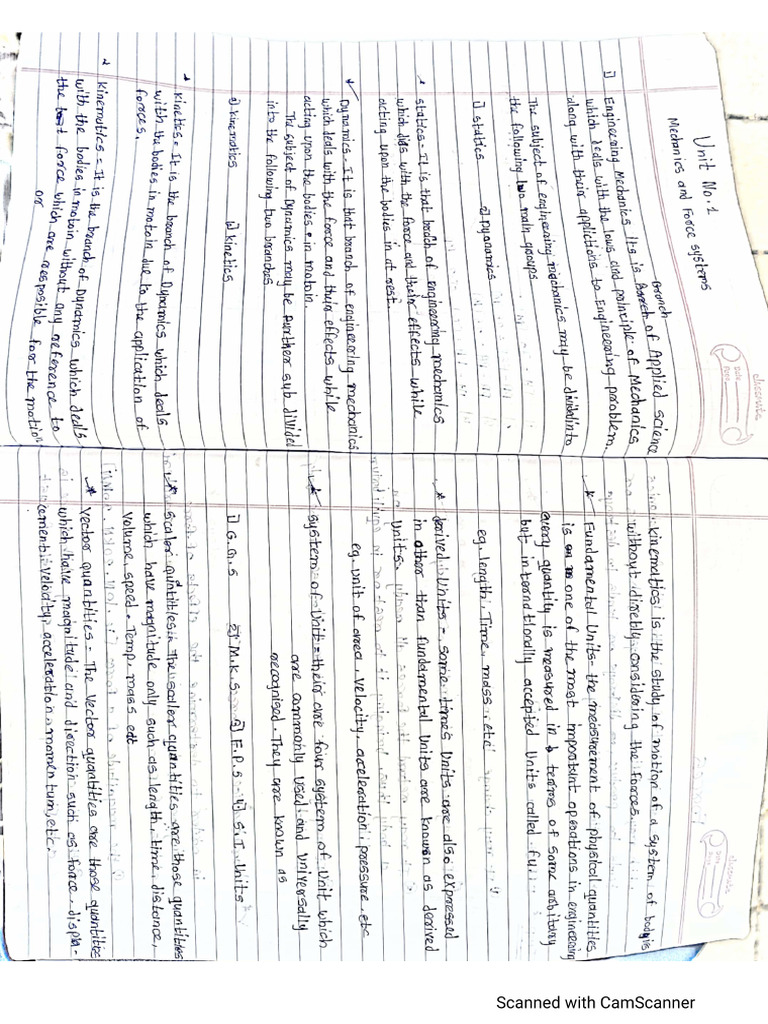 classmate
Date
Page
Unit No. 1
Mechanics and Force systems
Branch
1) Engineering Mechanics Its is Barrch of Applied science
which deals with the laws and painciple of Mechanics
along with their applictions to Engineering problem.
The subject of engineering mechanics may be divided into
the following two main groups
1) statics 2) Dyanamics
* statics - It is that brach of engineering mechanics
which dels with the force and their effects while
acting upon the bodies in at rest.
* Dynamics - It is that branch of engineering mechanics
which deals with the force and their effects while
acting upon the bodies in motain.
The subject of Dynamics may be further sub divided
into the following two branches
a) kinematics b) kinetics
* kinetics = It is the branch of Dynamics which deals
with the bodies in motain due to the application of
forces.
* kinematics = It is the branch of Dynamics which deals
with the bodies in motain without any reference to
the force which are resposible for the motion
or
classmate
Date
Page
kinematics is the study of motion of a system of bodyis
without dirrectly considering the forces
* Fundamental Units - the measurement of physical quantities
is one of the most important oprations in engineering
every quantity is measured in terms of some arbitary
but internationally accepted Units called fu..
eg. length, Time, mass, etc
* derived Units = some times Units are also expressed
in other than fundamental Units are known as derived
Units.
eg. Unit of area, velocity, acceleration, pressure, etc
* system of Unit = their are four system of Unit which
are commonly used and universally
recognised. They are known as
1) G.C.S 2) M.K.S. 3) F.P.S 4) S.I. Units
* scaler quntities = The scaler quantities are those quantities
which have magnitude only such as length, time, distance,
volume, speed, Temp. mass
* vector quantities = The vector quantities are those quantities
which have magnitude and direction such as force, displa-
cement velocity, acceleration, momentum, etc.
Scanned with CamScanner